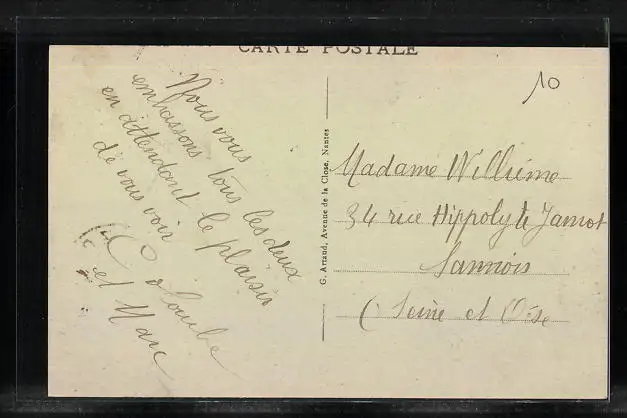 CARTE POSTALE
10
Nous vous
embrassons tous les deux
en attendant le plaisir
de vous voir
Colombe
et Marc
G. Artaud, Avenue de la Close, Nantes
Madame Willième
34 rue Hippolyte Jamot
Sannois
(Seine et Oise